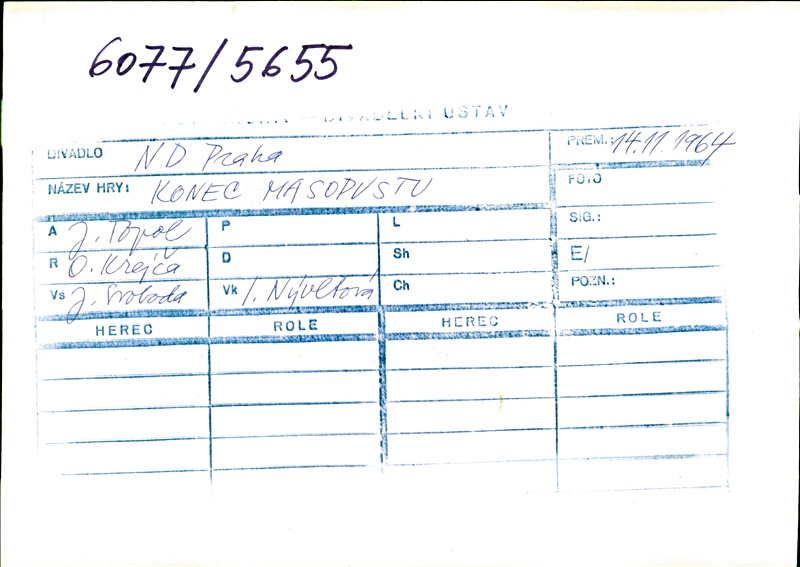 6077/5655
DIVADELNÍ ÚSTAV
DIVADLO ND Praha PREM.: 14.11.1964
NÁZEV HRY: KONEC MASOPUSTU FOTO
A J. Topol P L SIG.:
R O. Krejča D Sh E/
Vs J. Svoboda Vk I. Nývltová Ch POZN.:
HEREC ROLE HEREC ROLE